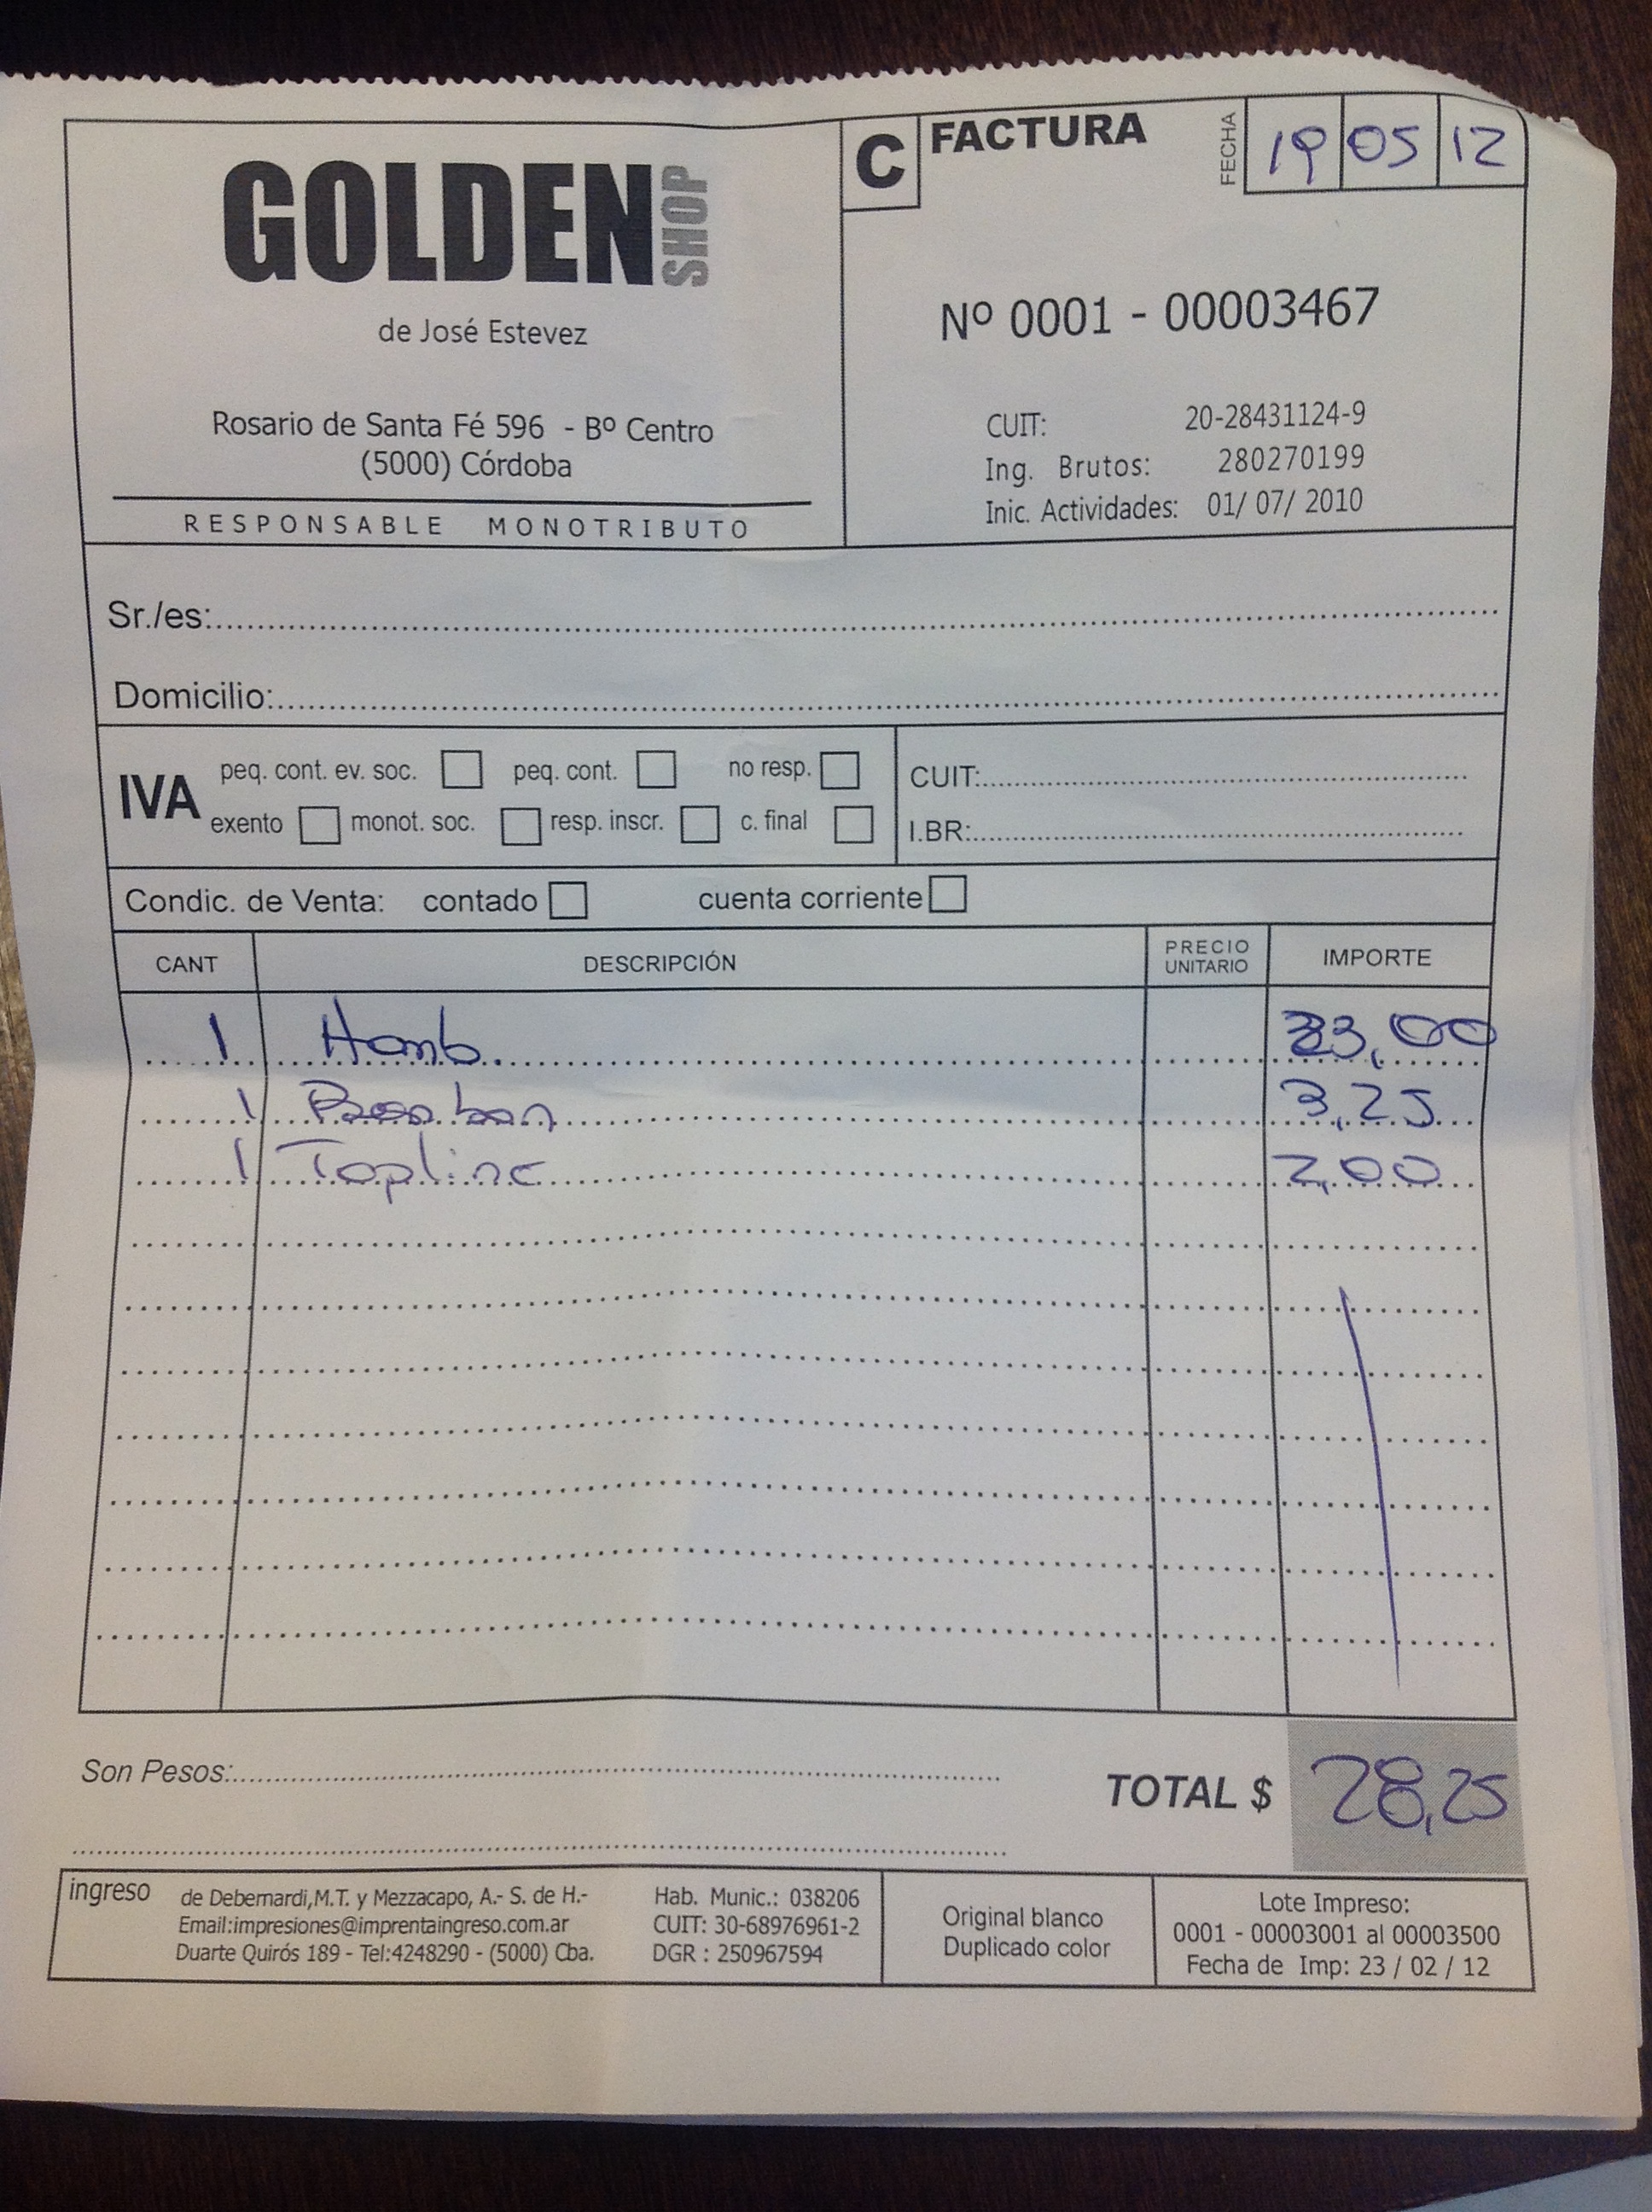 GOLDEN SHOP
de José Estevez
Rosario de Santa Fé 596 - Bº Centro
(5000) Córdoba
RESPONSABLE MONOTRIBUTO
C FACTURA
FECHA 19 05 12
Nº 0001 - 00003467
CUIT: 20-28431124-9
Ing. Brutos: 280270199
Inic. Actividades: 01/ 07/ 2010
Sr./es:
Domicilio:
IVA
peq. cont. ev. soc. peq. cont. no resp.
exento monot. soc. resp. inscr. c. final
CUIT:
I.BR:
Condic. de Venta: contado cuenta corriente
CANT DESCRIPCIÓN PRECIO UNITARIO IMPORTE
1 Hamb. 23,00
1 3,25
1 Topline 2,00
Son Pesos:
TOTAL $ 28,25
ingreso
de Debernardi,M.T. y Mezzacapo, A.- S. de H.-
Email:impresiones@imprentaingreso.com.ar
Duarte Quirós 189 - Tel:4248290 - (5000) Cba.
Hab. Munic.: 038206
CUIT: 30-68976961-2
DGR : 250967594
Original blanco
Duplicado color
Lote Impreso:
0001 - 00003001 al 00003500
Fecha de Imp: 23 / 02 / 12